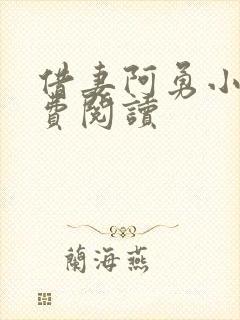 借妻阿勇小
費閱讀
蘭海燕